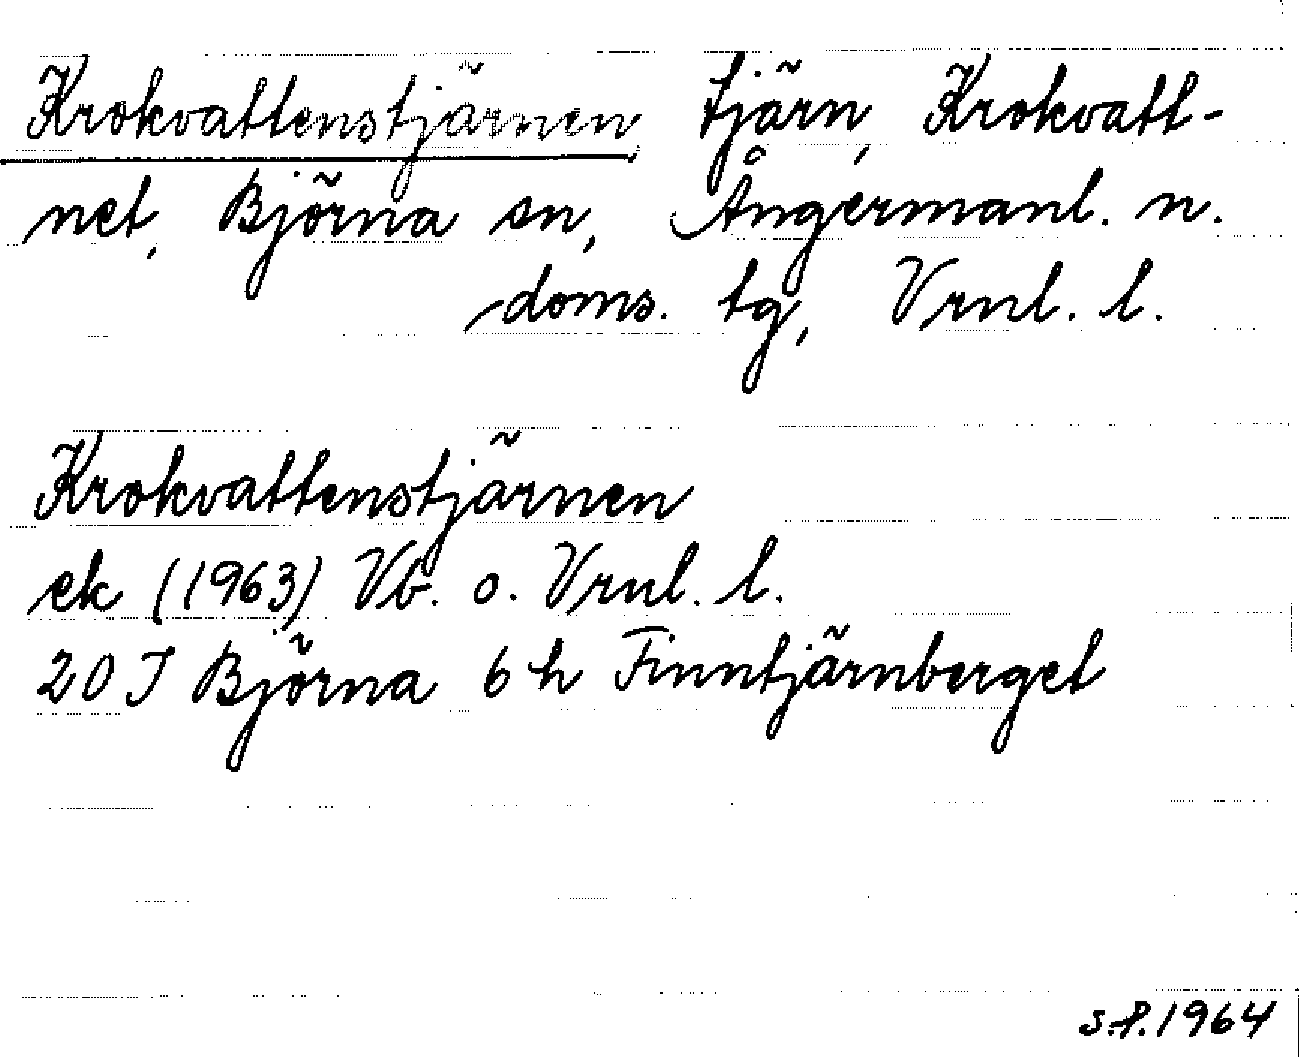 Krokvattenstjärnen tjärn, Krokvatt-
net, Björna sn, Ångermanl. n.
doms. tg, Vrnl. l.
Krokvattenstjärnen
ek (1963) Vb. o. Vrnl. l.
20 J Björna 6 h Finntjärnberget
s.f. 1964